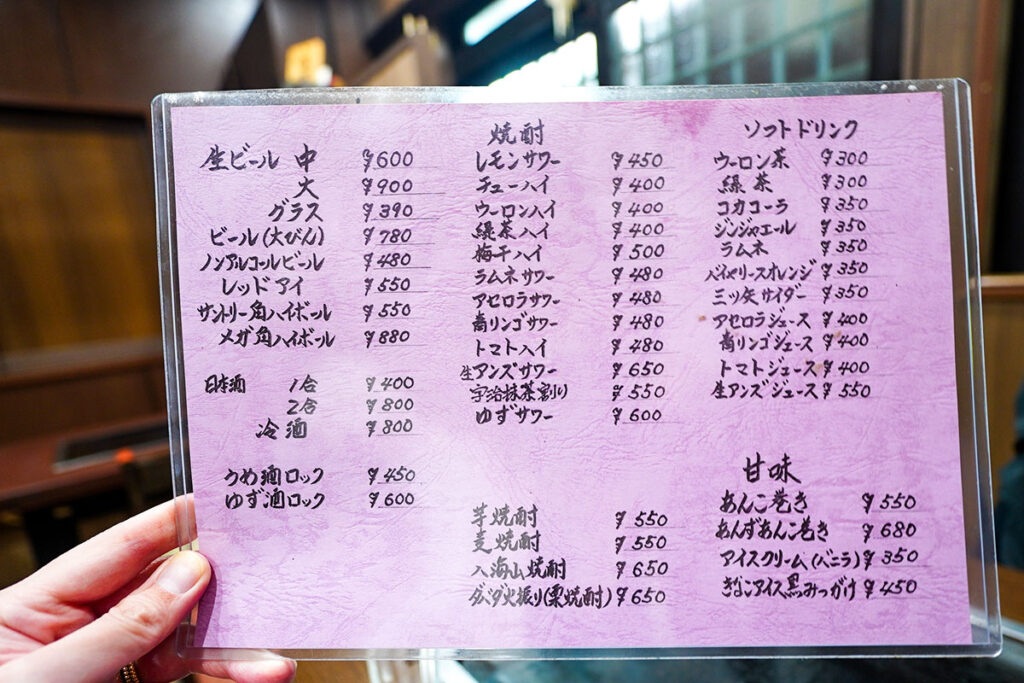 生ビール 中 ¥600
大 ¥900
グラス ¥390
ビール(大びん) ¥780
ノンアルコールビール ¥480
レッドアイ ¥550
サントリー角ハイボール ¥550
メガ角ハイボール ¥880
日本酒 1合 ¥400
2合 ¥800
冷酒 ¥800
うめ酒ロック ¥450
ゆず酒ロック ¥600
焼酎
レモンサワー ¥450
チューハイ ¥400
ウーロンハイ ¥400
緑茶ハイ ¥400
梅干ハイ ¥500
ラムネサワー ¥480
アセロラサワー ¥480
青リンゴサワー ¥480
トマトハイ ¥480
生アンズサワー ¥650
宇治抹茶割り ¥550
ゆずサワー ¥600
芋焼酎 ¥550
麦焼酎 ¥550
八海山焼酎 ¥650
ダバダ火振り(栗焼酎) ¥650
ソフトドリンク
ウーロン茶 ¥300
緑茶 ¥300
コカコーラ ¥350
ジンジャエール ¥350
ラムネ ¥350
バイヤリースオレンジ ¥350
三ツ矢サイダー ¥350
アセロラジュース ¥400
青リンゴジュース ¥400
トマトジュース ¥400
生アンズジュース ¥550
甘味
あんこ巻き ¥550
あんずあんこ巻き ¥680
アイスクリーム(バニラ) ¥350
きなこアイス黒みつがけ ¥450